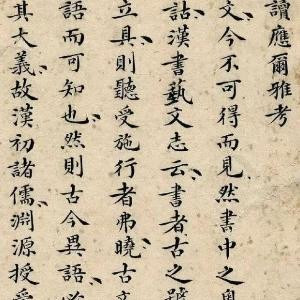 讀應爾雅考
文今不可得而見然書中之奧
詁漢書藝文志云書者古之號
立具則聽受施行者弗曉古文
語而可知也然則古今異語必
其大義故漢初諸儒淵源授受